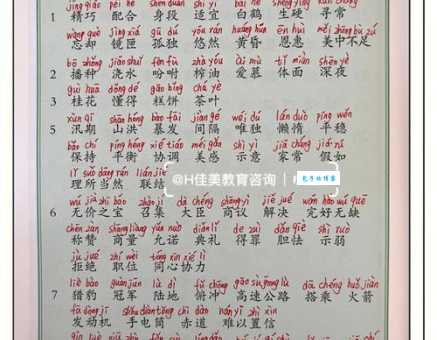 jīng qiǎo pèi hé shēn duàn shì yí bái hè shēng yìng xún cháng
1 精巧 配合 身段 适宜 白鹤 生硬 寻常
wàng què jìng kuàng gū dú yōu rán huáng hūn ēn huì měi zhōng bù zú
忘却 镜匣 孤独 悠然 黄昏 恩惠 美中不足
bō zhǒng jiāo shuǐ fēn fù zhà yóu ài mù tǐ miàn shēn yè
2 播种 浇水 吩咐 榨油 爱慕 体面 深夜
guì huā dǒng dé gāo bǐng chá yè
3 桂花 懂得 糕饼 茶叶
xùn qī shān hóng bào fā jiàn gé wéi dú lǎn duò píng wěn
5 汛期 山洪 暴发 间隔 唯独 懒惰 平稳
bǎo chí píng héng xié tiáo měi gǎn shì yì jiā cháng jiǎ rú
保持 平衡 协调 美感 示意 家常 假如
lǐ suǒ dāng rán lián jié
理所当然 联结
@H佳美教育咨询
包子的博客
wú jià zhī bǎo zhào jí dà chén shāng yì jiě jué wán hǎo wú quē
6 无价之宝 召集 大臣 商议 解决 完好无缺
chēng zàn shāng liàng yǔn nuò diǎn lǐ dé zuì dǎn qiè shì ruò
称赞 商量 允诺 典礼 得罪 胆怯 示弱
jù jué zhí wèi tóng xīn xié lì
拒绝 职位 同心协力
liè bào guàn jūn lù dì fǔ chōng gāo sù gōng lù dā chéng huǒ jiàn
7 猎豹 冠军 陆地 俯冲 高速公路 搭乘 火箭
fā dòng jī shǒu diàn tǒng chì dào nán yǐ zhì xìn
发动机 手电筒 赤道 难以置信